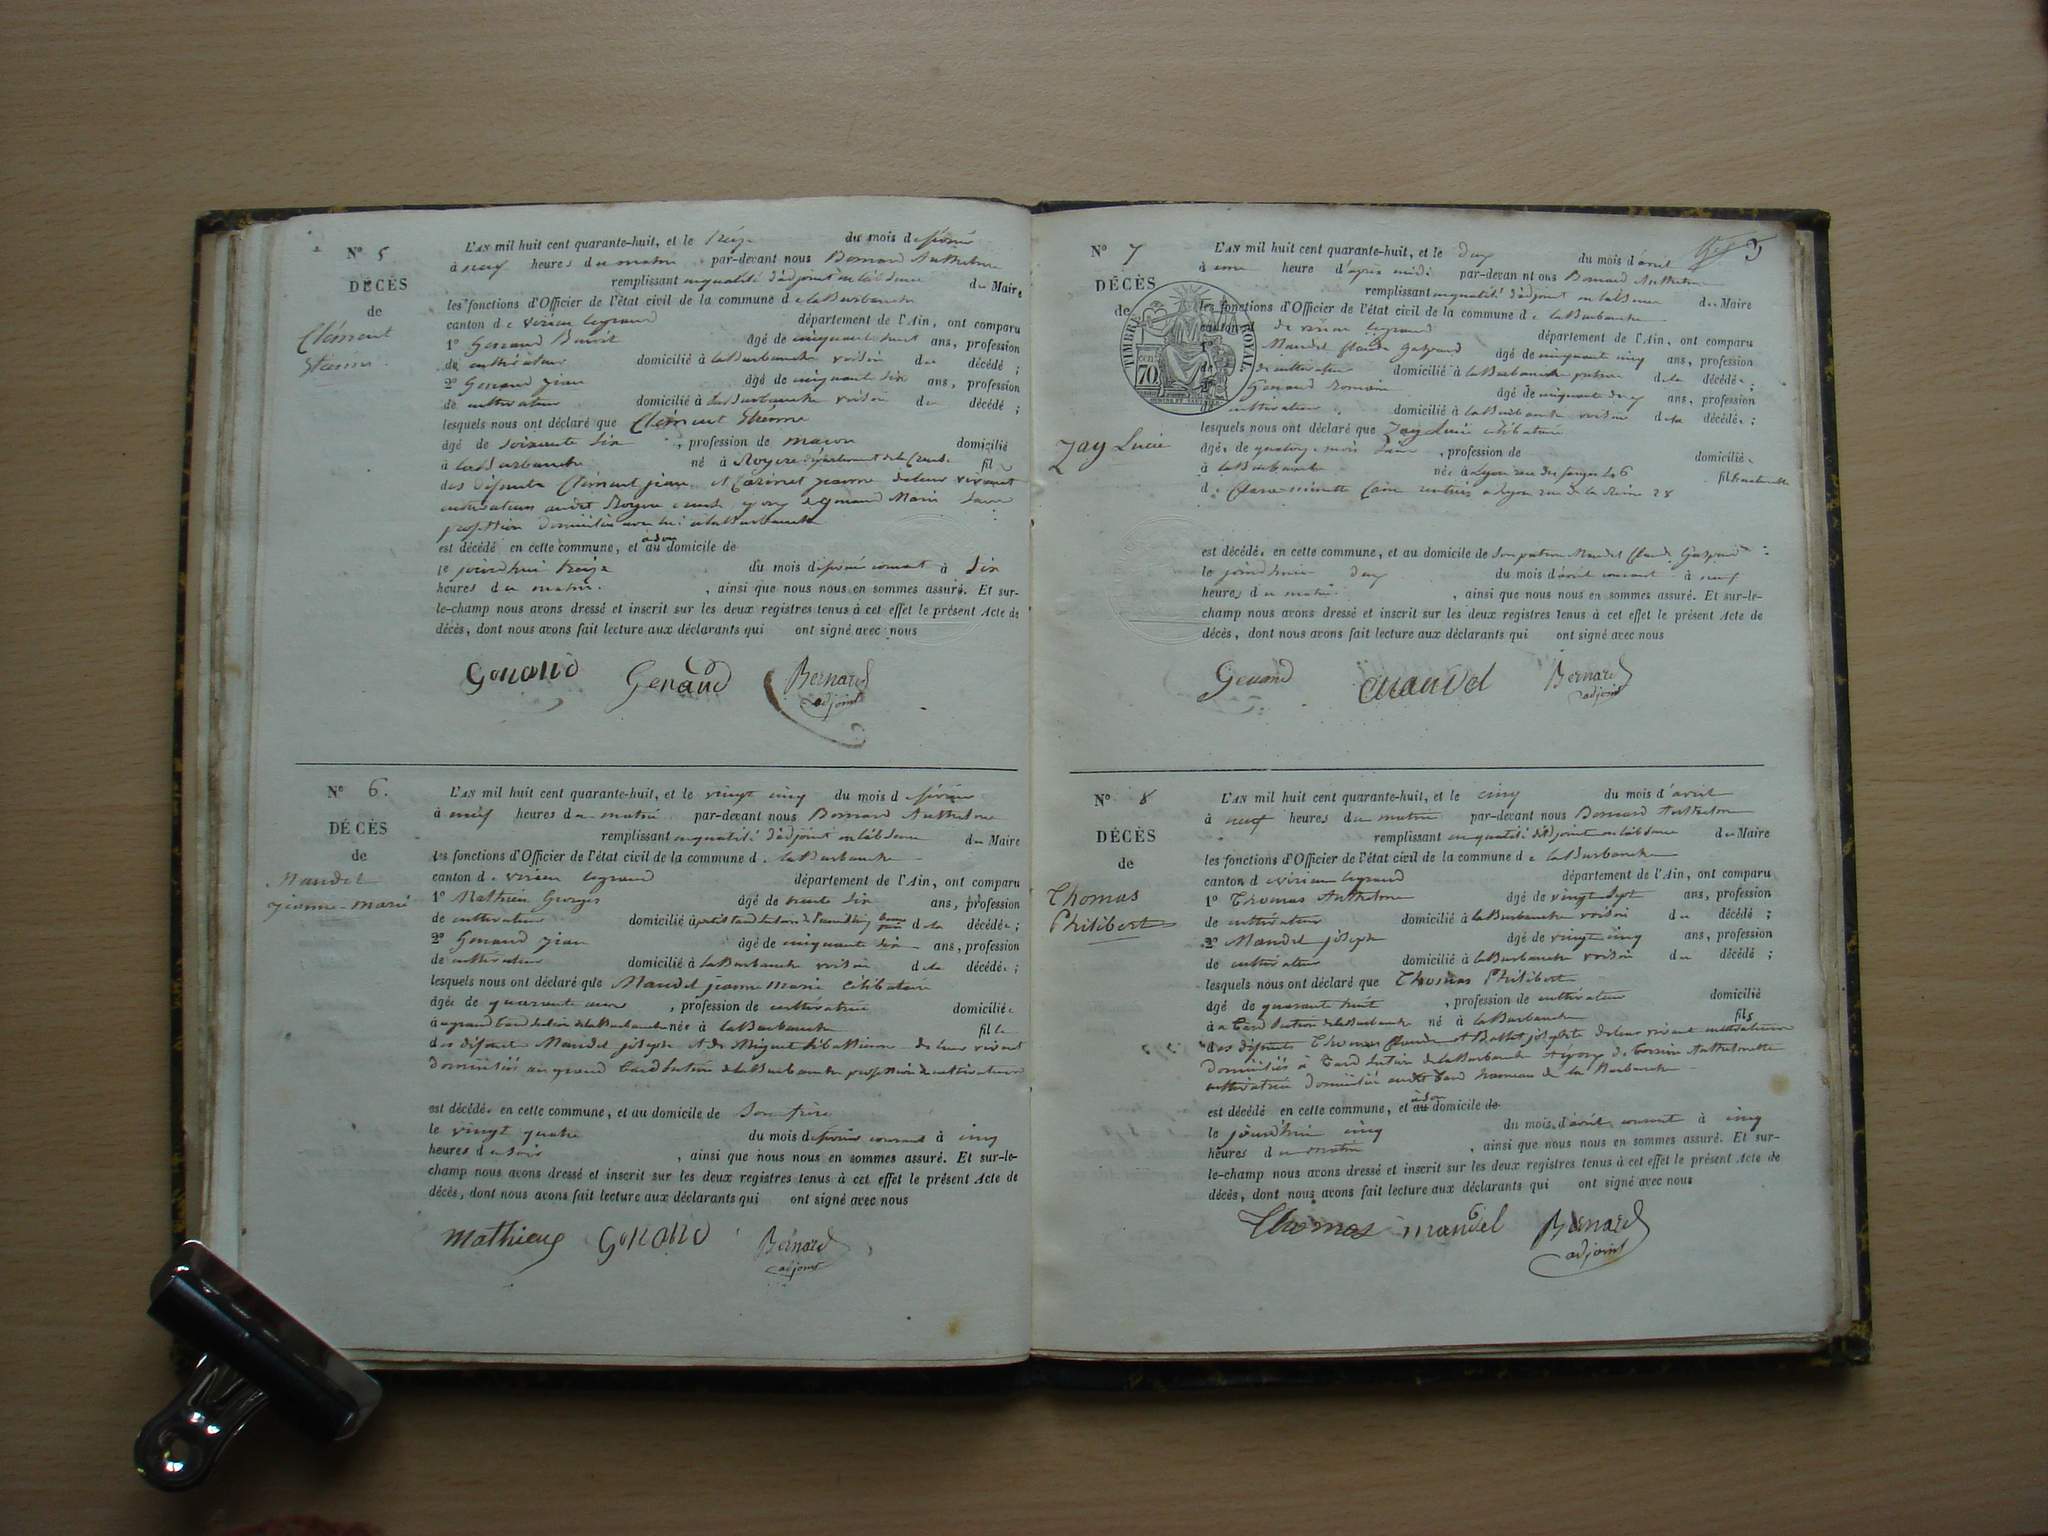 N° 5
DÉCÈS
de
Clément
Etienne
L'AN mil huit cent quarante-huit, et le treize du mois de février
à neuf heures du matin par-devant nous Bernard Anthelme
remplissant en qualité d'adjoint du Maire
les fonctions d'Officier de l'état civil de la commune de la Burbanche
canton de virieu legrand département de l'Ain, ont comparu
1° Genaud Benoit âgé de cinquante huit ans, profession
de cultivateur domicilié à la Burbanche voisin du décédé ;
2° Genaud jean âgé de cinquante six ans, profession
de cultivateur domicilié à la Burbanche voisin du décédé ;
lesquels nous ont déclaré que Clément Etienne
âgé de soixante six , profession de maçon domicilié
à la Burbanche né à Royere département de la Creuse fil
des défunts Clément jean et jeanne de leur vivant
cultivateurs audit Royere Genaud Marie sans
profession domiciliée avec lui à la Burbanche
est décédé en cette commune, et au domicile de
à son
le jourdhui treize du mois de février courant à six
heures du matin , ainsi que nous nous en sommes assuré. Et sur-
le-champ nous avons dressé et inscrit sur les deux registres tenus à cet effet le présent Acte de
décès, dont nous avons fait lecture aux déclarants qui ont signé avec nous
Genaud Genaud Bernard
adjoint
N° 6.
DÉCÈS
de
Mandel
jeanne-marie
L'AN mil huit cent quarante-huit, et le vingt cinq du mois d février
à neuf heures du matin par-devant nous Bernard Anthelme
remplissant en qualité d'adjoint du Maire
les fonctions d'Officier de l'état civil de la commune d. la Burbanche
canton de virieu legrand département de l'Ain, ont comparu
1° Mathieu Georges âgé de trente six ans, profession
de cultivateur domicilié à de la décédée ;
2° Genaud jean âgé de cinquante six ans, profession
de cultivateur domicilié à la Burbanche voisin de la décédée ;
lesquels nous ont déclaré que Mandel jeanne marie célibataire
âgée de quarante , profession de cultivatrice domiciliée
à au grand tard section de la Burbanche née à la Burbanche fille
des défunts Mandel joseph et de Miguet sébastienne de leur vivant
domiciliés au grand tard section de la Burbanche profession de cultivateurs
est décédée en cette commune, et au domicile de son frère
le vingt quatre du mois de février courant à cinq
heures du soir , ainsi que nous nous en sommes assuré. Et sur-le-
champ nous avons dressé et inscrit sur les deux registres tenus à cet effet le présent Acte de
décès, dont nous avons fait lecture aux déclarants qui ont signé avec nous
mathieu Genaud Bernard
adjoint
N° 7
DÉCÈS
de
Zay Lucie
TIMBRE ROYAL
70
L'AN mil huit cent quarante-huit, et le deux du mois d'avril
à une heure d'après midi par-devan nt ous Bernard Anthelme
remplissant en qualité d'adjoint du Maire
les fonctions d'Officier de l'état civil de la commune de la Burbanche
canton de virieu legrand département de l'Ain, ont comparu
Mandel Claude Gaspard âgé de cinquante cinq ans, profession
de cultivateur domicilié à la Burbanche patron de la décédée ;
Genaud Romain âgé de cinquante deux ans, profession
de cultivateur domicilié à la Burbanche voisin de la décédée ;
lesquels nous ont déclaré que Zay Lucie célibataire
âgée de quatorze mois sans , profession de domiciliée
à la Burbanche née à Lyon rue des farges N° 6 fille naturelle
d. à Lyon rue de la Reine 28
est décédée en cette commune, et au domicile de son patron Mandel Claude Gaspard
le jourdhui deux du mois d'avril courant à neuf
heures du matin , ainsi que nous nous en sommes assuré. Et sur-le-
champ nous avons dressé et inscrit sur les deux registres tenus à cet effet le présent Acte de
décès, dont nous avons fait lecture aux déclarants qui ont signé avec nous
Genaud Mandel Bernard
adjoint
N° 8
DÉCÈS
de
Thomas
Philibert
L'AN mil huit cent quarante-huit, et le cinq du mois d'avril
à neuf heures du matin par-devant nous Bernard Anthelme
remplissant en qualité d'adjoint du Maire
les fonctions d'Officier de l'état civil de la commune de la Burbanche
canton d virieu legrand département de l'Ain, ont comparu
1° Thomas Anthelme âgé de vingt sept ans, profession
de cultivateur domicilié à la Burbanche voisin du décédé ;
2° Mandel joseph âgé de vingt cinq ans, profession
de cultivateur domicilié à la Burbanche voisin du décédé ;
lesquels nous ont déclaré que Thomas Philibert
âgé de quarante huit , profession de cultivateur domicilié
à tard section de la Burbanche né à la Burbanche fils
des défunts Thomas Claude et josephte de leur vivant cultivateurs
domiciliés à tard section de la Burbanche époux de Anthelmette
cultivatrice domiciliée audit tard hameau de la Burbanche
est décédé en cette commune, et au domicile de
à son
le jourdhui cinq du mois d'avril courant à cinq
heures du matin , ainsi que nous nous en sommes assuré. Et sur-
le-champ nous avons dressé et inscrit sur les deux registres tenus à cet effet le présent Acte de
décès, dont nous avons fait lecture aux déclarants qui ont signé avec nous
Thomas mandel Bernard
adjoint